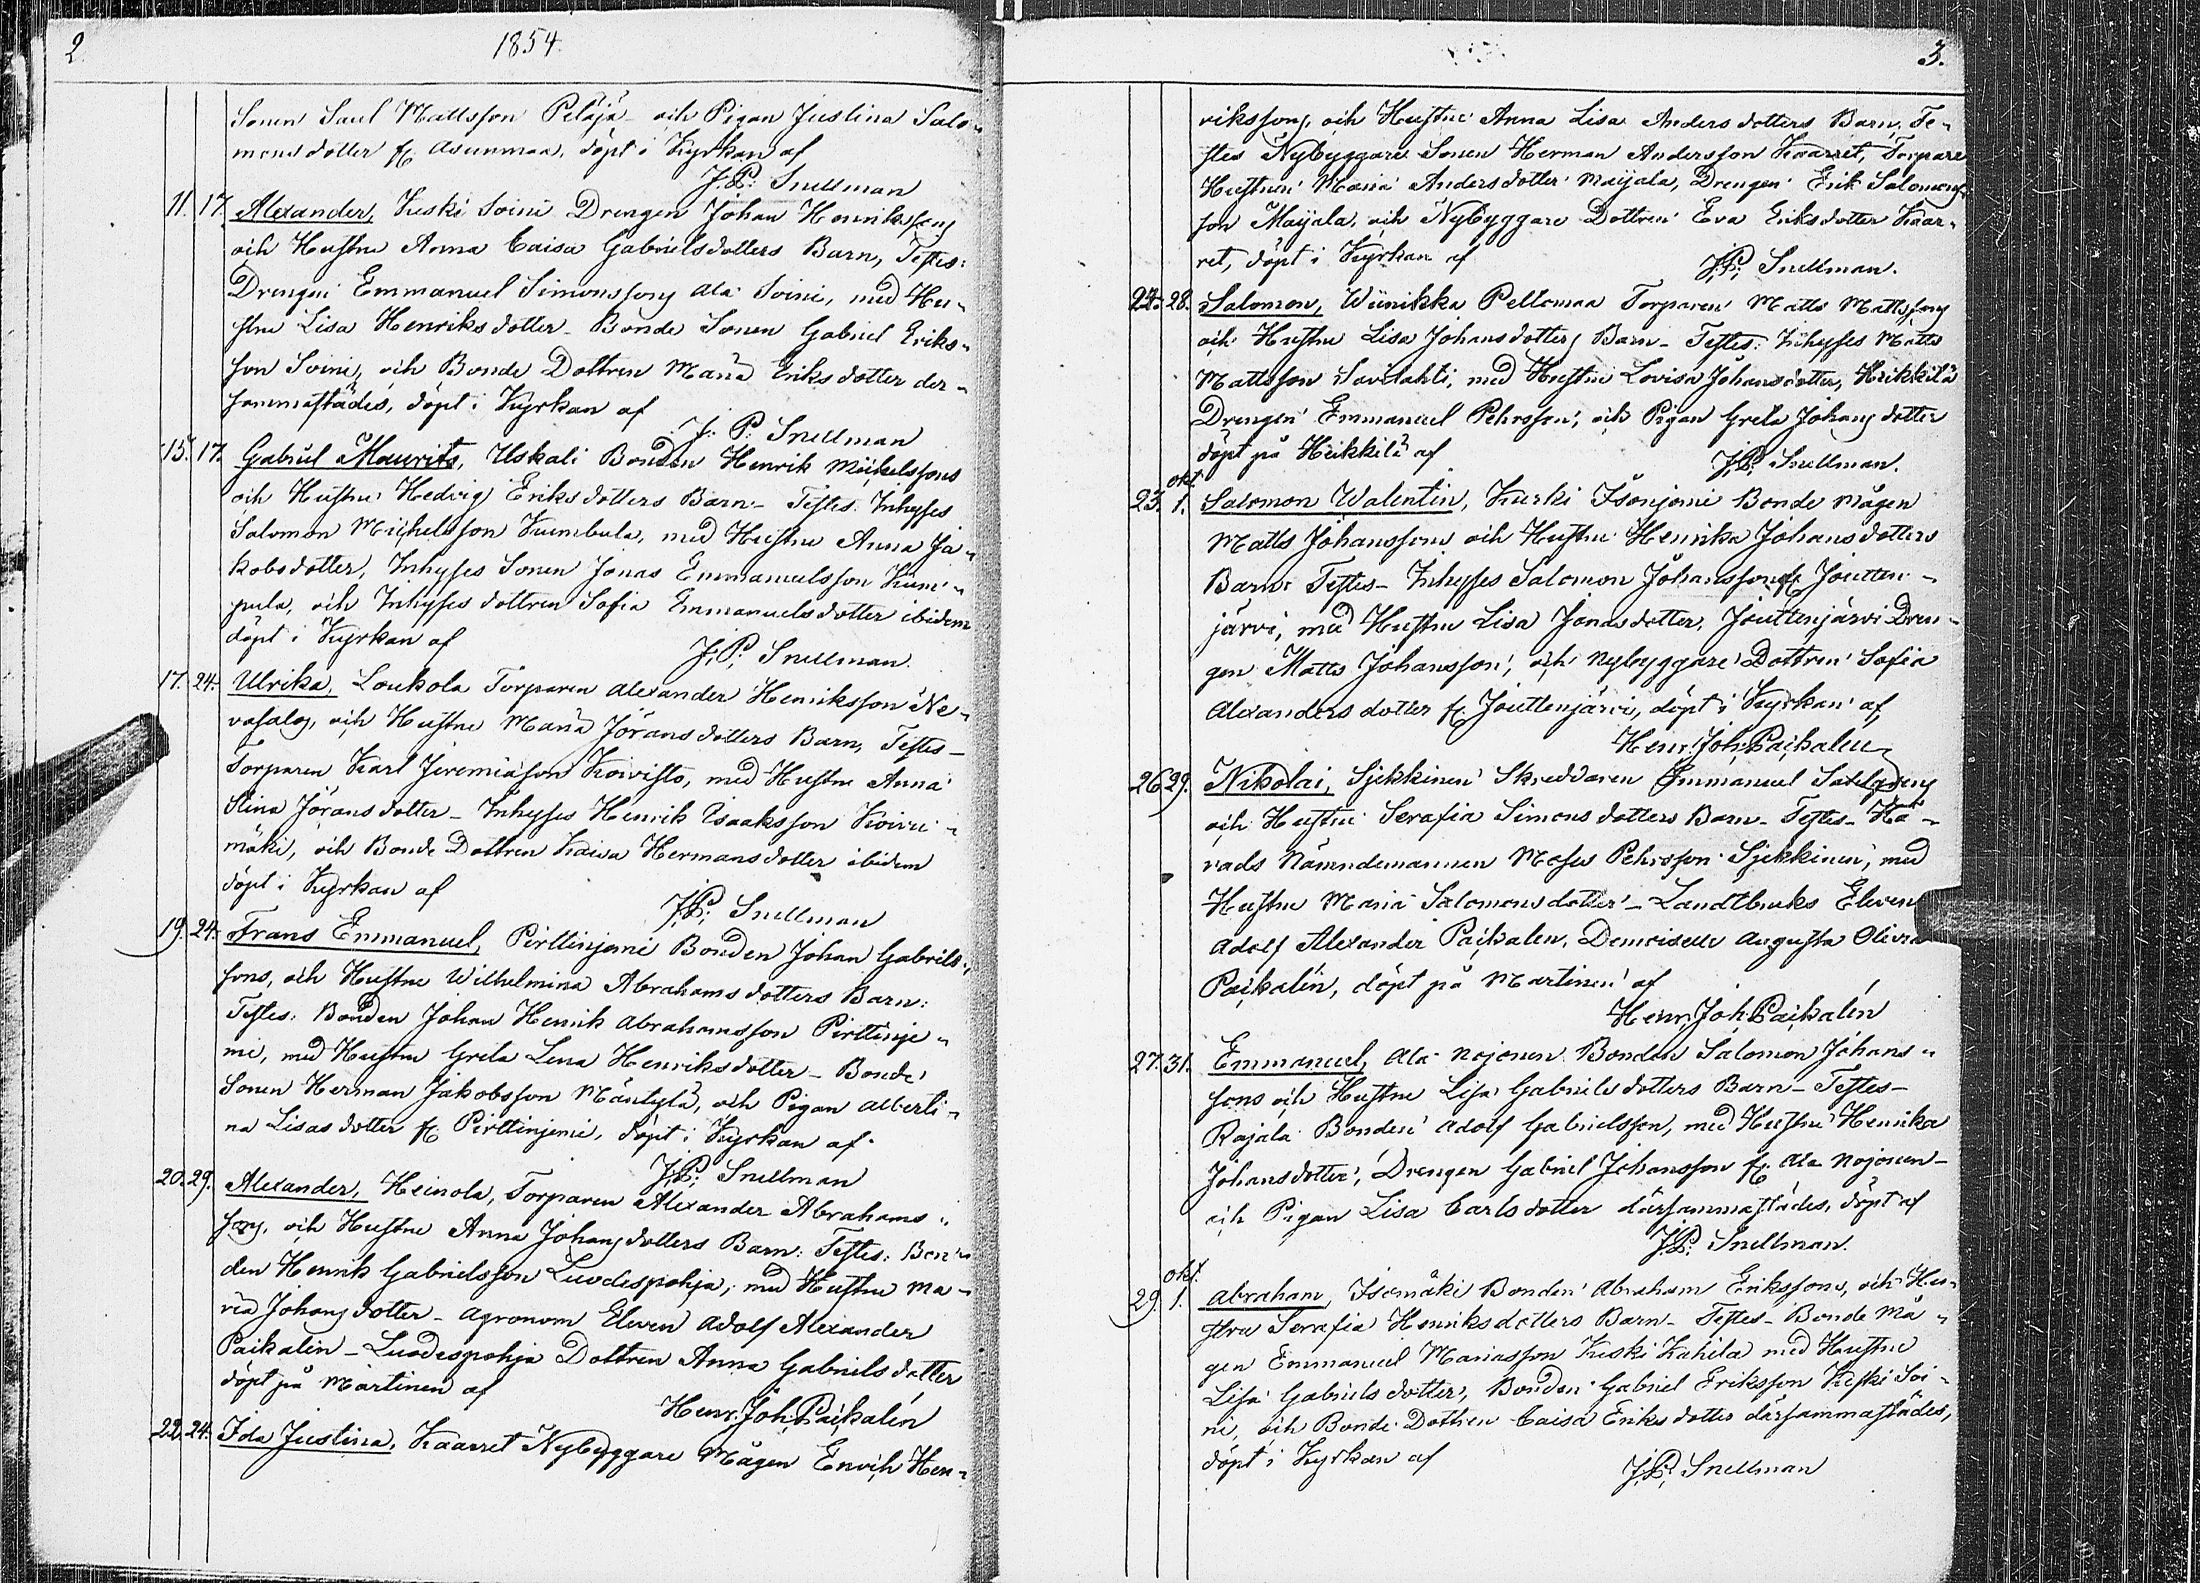 2
1854
Sonen Saul Mattsson Peläjä och Pigan Justina Salo-
monsdotter fr. Asunmaa, döpt i Kyrkan af
J.P. Snellman
11. 17. Alexander, Kuski Soini Drengen Johan Henrikssons
och Hustru Anna Caisa Gabrielsdotters Barn, Testes:
Drengen Emmanuel Simonsson Ala Soini, med Hu-
stru Lisa Henriksdotter – Bonde Sonen Gabriel Eriks-
son Soini, och Bonde Dottren Maria Eriksdotter der-
sammastädes, döpt i Kyrkan af
J. P. Snellman
15. 17. Gabriel Maurits, Uskali Bonden Henrik Michelssons
och Hustru Hedvig Eriksdotters Barn – Testes. Inhyses
Salomon Michelsson Kumbula, med Hustru Anna Ja-
kobsdotter, Inhyses Sonen Jonas Emmanuelsson Kum-
pula, och Inhyses dottren Sofia Emmanuelsdotter ibidem
döpt i Kyrkan af
J.P. Snellman.
17. 24. Ulrika, Loukola Torparen Alexander Henriksson Ne-
vasalos, och Hustru Maria Jöransdotters Barn, Testes –
Torparen Karl Jeremiasson Koivisto, med Hustru Anna
Stina Jöransdotter – Inhyses Henrik Isaaksson Koivu-
mäki, och Bonde Dottren Kaisa Hermansdotter ibidem
döpt i Kyrkan af
J.P. Snellman
19. 24. Frans Emmanuel, Pirttinjemi Bonden Johan Gabriels-
sons, och Hustru Wilhelmina Abrahamsdotters Barn:
Testes: Bonden Johan Henrik Abrahamsson Pirttinje-
mi, med Hustru Greta Lena Henriksdotter – Bonde
Sonen Herman Jakobsson Mäntylä, och Pigan Alberti-
na Lisasdotter fr. Pirttinjemi, döpt i Kyrkan af
J.P. Snellman
20. 29. Alexander, Heinola, Torparen Alexander Abrahams-
sons, och Hustru Anna Johansdotters Barn: Testes: Bon-
den Henrik Gabrielsson Luodespohja, med Hustru Ma-
ria Johansdotter – Agronom Eleven Adolf Alexander
Paikalin – Luodespohja Dottren Anna Gabrielsdotter
döpt på Martinen af
Henr. Joh. Paikalén
22. 24. Ida Justina, Kaarret Nybyggare Mågen Enrik Hen-
3.
rikssons, och Hustru Anna Lisa Andersdotters Barn, Te-
stes Nybyggare Sonen Herman Andersson Kaarret, Torpare
Hustrun Maria Andersdotter Maijala, Drengen Erik Salomons-
son Maijala, och Nybyggare Dottren Eva Eriksdotter Kaar-
ret, döpt i Kyrkan af
J.P. Snellman.
24. 28. Salomon, Wünikka Peltomaa Torparen Matts Mattssons
och Hustru Lisa Johansdotters Barn – Testes: Inhyses Matts
Mattsson Savilahti, med Hustru Lovisa Johansdotter, Heikkilä
Drengen Emmanuel Pehrsson, och Pigan Greta Johansdotter
döpt på Heikkilä af
J.P. Snellman.
okt.
23. 1. Salomon Walentin, Kuski Isonjemi Bonde Mågen
Matts Johanssons och Hustru Henrika Johansdotters
Barn: Testes – Inhyses Salomon Johansson fr. Joutten-
järvi, med Hustru Lisa Jonasdotter, Jouttenjärvi Dren-
gen Matts Johansson, och Nybyggare Dottren Sofia
Alexandersdotter fr. Jouttenjärvi, döpt i Kyrkan af
Henr. Joh. Paikalén
26. 29. Nikolai, Sjekkinen Skreddaren Emmanuel
och Hustru Serafia Simonsdotters Barn – Testes – Hä-
rads Nämndemannen Moses Pehrsson Sjekkinen, med
Hustru Maria Salomonsdotter – Landtbruks Eleven
Adolf Alexander Paikalen, Demoiselle Augusta Olivia
Paikalén, döpt på Martinen af
Henr. Joh. Paikalén
27. 31. Emmanuel, Ala Nojonen Bonden Salomon Johans-
sons och Hustru Lisa Gabrielsdotters Barn – Testes –
Rajala Bonden Adolf Gabrielsson, med Hustru Henrika
Johansdotter, Drengen Gabriel Johansson fr. Ala Nojonen –
och Pigan Lisa Carlsdotter därsammastädes, döpt af
J.P. Snellman.
okt.
29. 1. Abraham, Isomäki Bonden Abraham Erikssons, och Hu-
stru Serafia Henriksdotters Barn – Testes – Bonde Må-
gen Emmanuel Mariasson Kuski Kahila med Hustru
Lisa Gabrielsdotter, Bonden Gabriel Eriksson Kuski Soi-
ni, och Bonde Dottren Caisa Eriksdotter därsammastädes,
döpt i Kyrkan af
J.P. Snellman